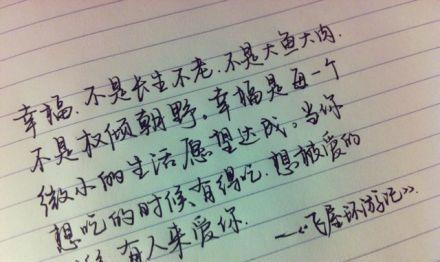 幸福.不是长生不老.不是大鱼大肉.
不是权倾朝野。幸福是每一个
微小的生活愿望达成。当你
想吃的时候有得吃.想被爱的
有人来爱你.
——《飞屋环游记》.